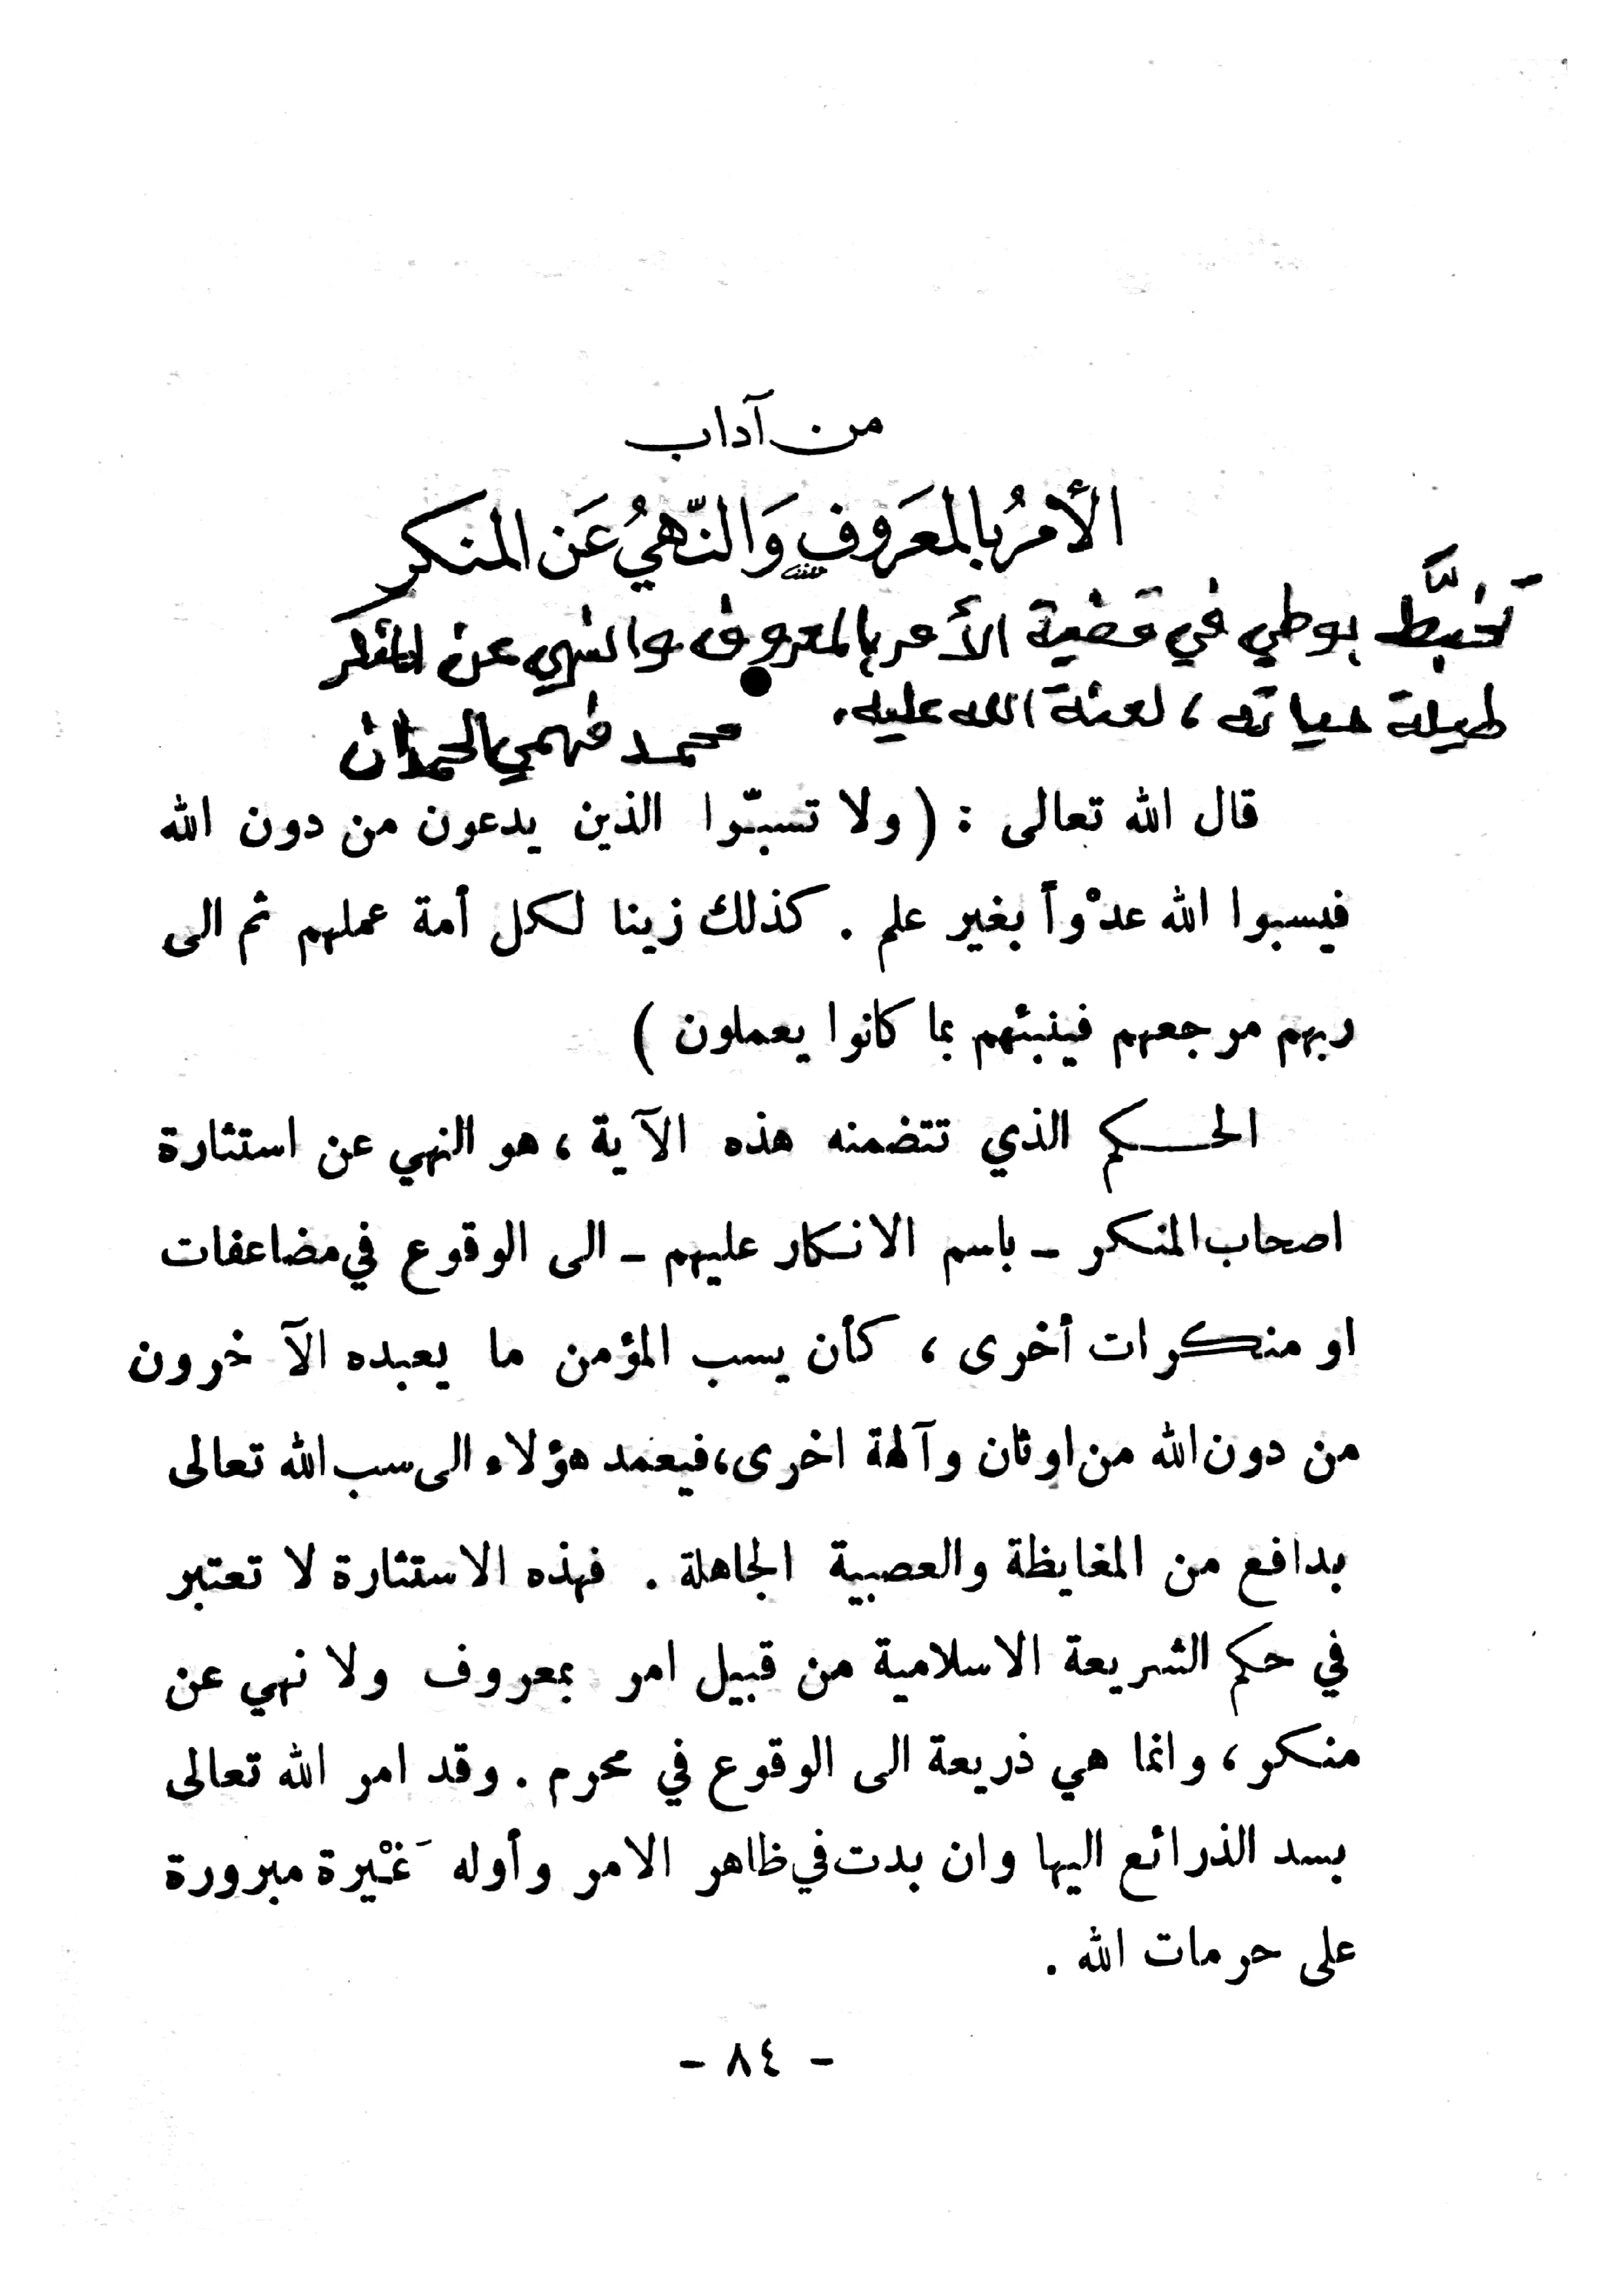 من آداب
الأمرُ بالمعَروفِ وَالنّهيُ عَن المنكر
تَخبَّط بوطي في قضية الأمر بالمعروف والنهي عن المنكر
طيلة حياته، لعنة الله عليه.
محمد فهمي الحمدان
قال الله تعالى : ( ولا تسبّوا الذين يدعون من دون الله
فيسبوا الله عدْواً بغير علم . كذلك زينا لكل أمة عملهم ثم الى
ربهم مرجعهم فينبئهم بما كانوا يعملون )
الحكم الذي تتضمنه هذه الآية ، هو النهي عن استثارة
اصحاب المنكر - باسم الانكار عليهم - الى الوقوع في مضاعفات
او منكرات أخرى ، كأن يسب المؤمن ما يعبده الآخرون
من دون الله من اوثان وآلهة اخرى، فيعمد هؤلاء الى سب الله تعالى
بدافع من المغايظة والعصبية الجاهلة . فهذه الاستثارة لا تعتبر
في حكم الشريعة الاسلامية من قبيل امر بمعروف ولا نهي عن
منكر ، وانما هي ذريعة الى الوقوع في محرم . وقد امر الله تعالى
بسد الذرائع اليها وان بدت في ظاهر الامر وأوله غَيْرة مبرورة
على حرمات الله .
- ٨٤ -